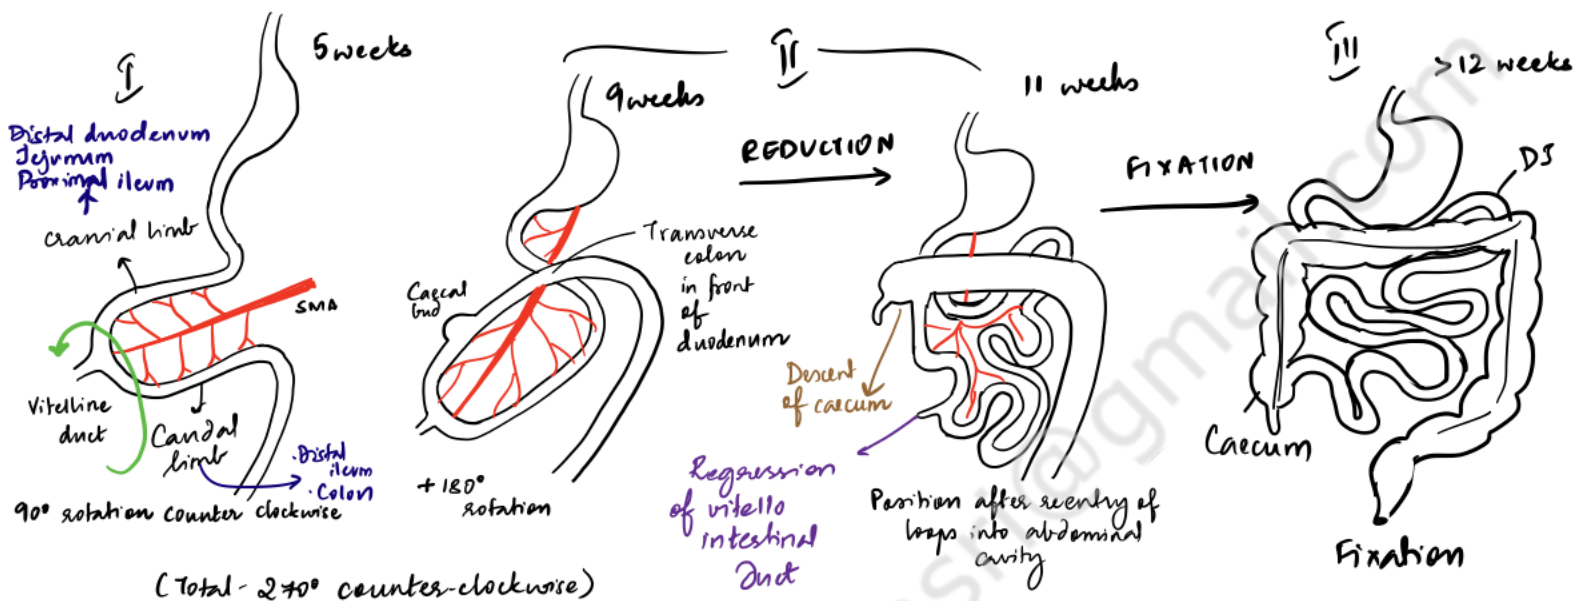 I
5 weeks
Distal duodenum
Jejunum
Proximal ileum
Cranial limb
SMA
Vitelline
duct
Caudal
limb
·Distal
ileum
·Colon
90° rotation counter clockwise
(Total - 270° counter-clockwise)
II
9 weeks
Transverse
colon
in front
of
duodenum
Caecal
bud
+180°
rotation
REDUCTION
11 weeks
Descent
of caecum
Regression
of vitello
intestinal
Duct
Position after reentry of
loops into abdominal
cavity
FIXATION
III
>12 weeks
DJ
Caecum
Fixation
sri@gmail.com